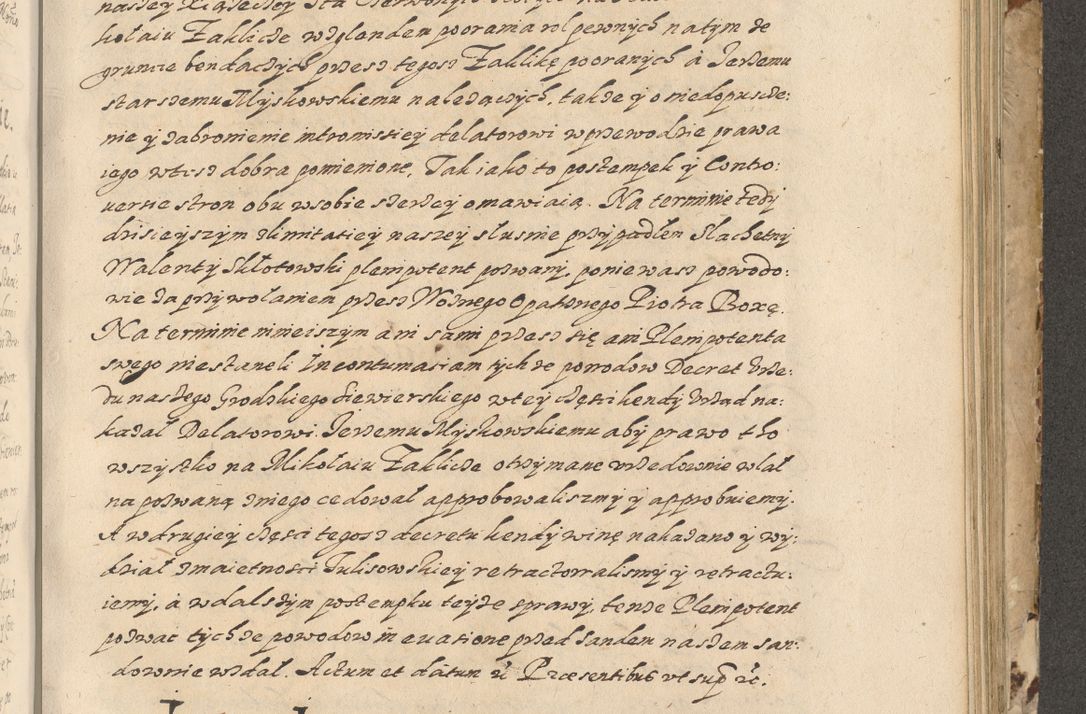 kołaiu Zaklicze względem poorania rol pewnych na tym że
gruncie bendączych przesz tegosz Zaklikę pooranych á Jerzemu
starszemu Myskowskiemu należączych, także y o niedopuscze:
nie y zabronienie intromissiey delatorowi wprzewodzie prawa
iego wtesz dobra pomienione, Tak iako to postempek y Contro:
uersie stron obu wsobie szerzey omawiaią. Na terminie tedy
dzisieyszym zlimitatiey naszey slusnie przypadłem Slachetny
Walenty Skłotowski plempotent pozwany, poniewasz powodo:
wie za przywołaniem przesz Woznego Opatrznego Piotra Boxę.
Na terminie ninieiszym ani sami przesz się ani Plenipotenta
swego niestaneli In contumaciam tych że powodow Decret Vrzę:
du naszego Grodzkiego Siewierskiego wtey części kendy Vrząd na:
kazał Delatorowi Jerzemu Myskowskiemu aby prawo tho
wszystko na Mikołaiu Zaklicze otrzymane vrzedownie wlał
na pozwaną zniego cedował approbowaliszmy y approbuiemy.
A wdrugiey części tegosz decretu kendy winę nakazano y wy:
dział zmaietnosci Tulisowskiey retractowalismy y retractu:
iemy, á wdalszym postempku teyże sprawy, tenże Plenipotent
pozwać tych że powodow in euasione przed sandem naszem san:
downie wzdał. Actum et datum &c Præsentibus vt supra &c.